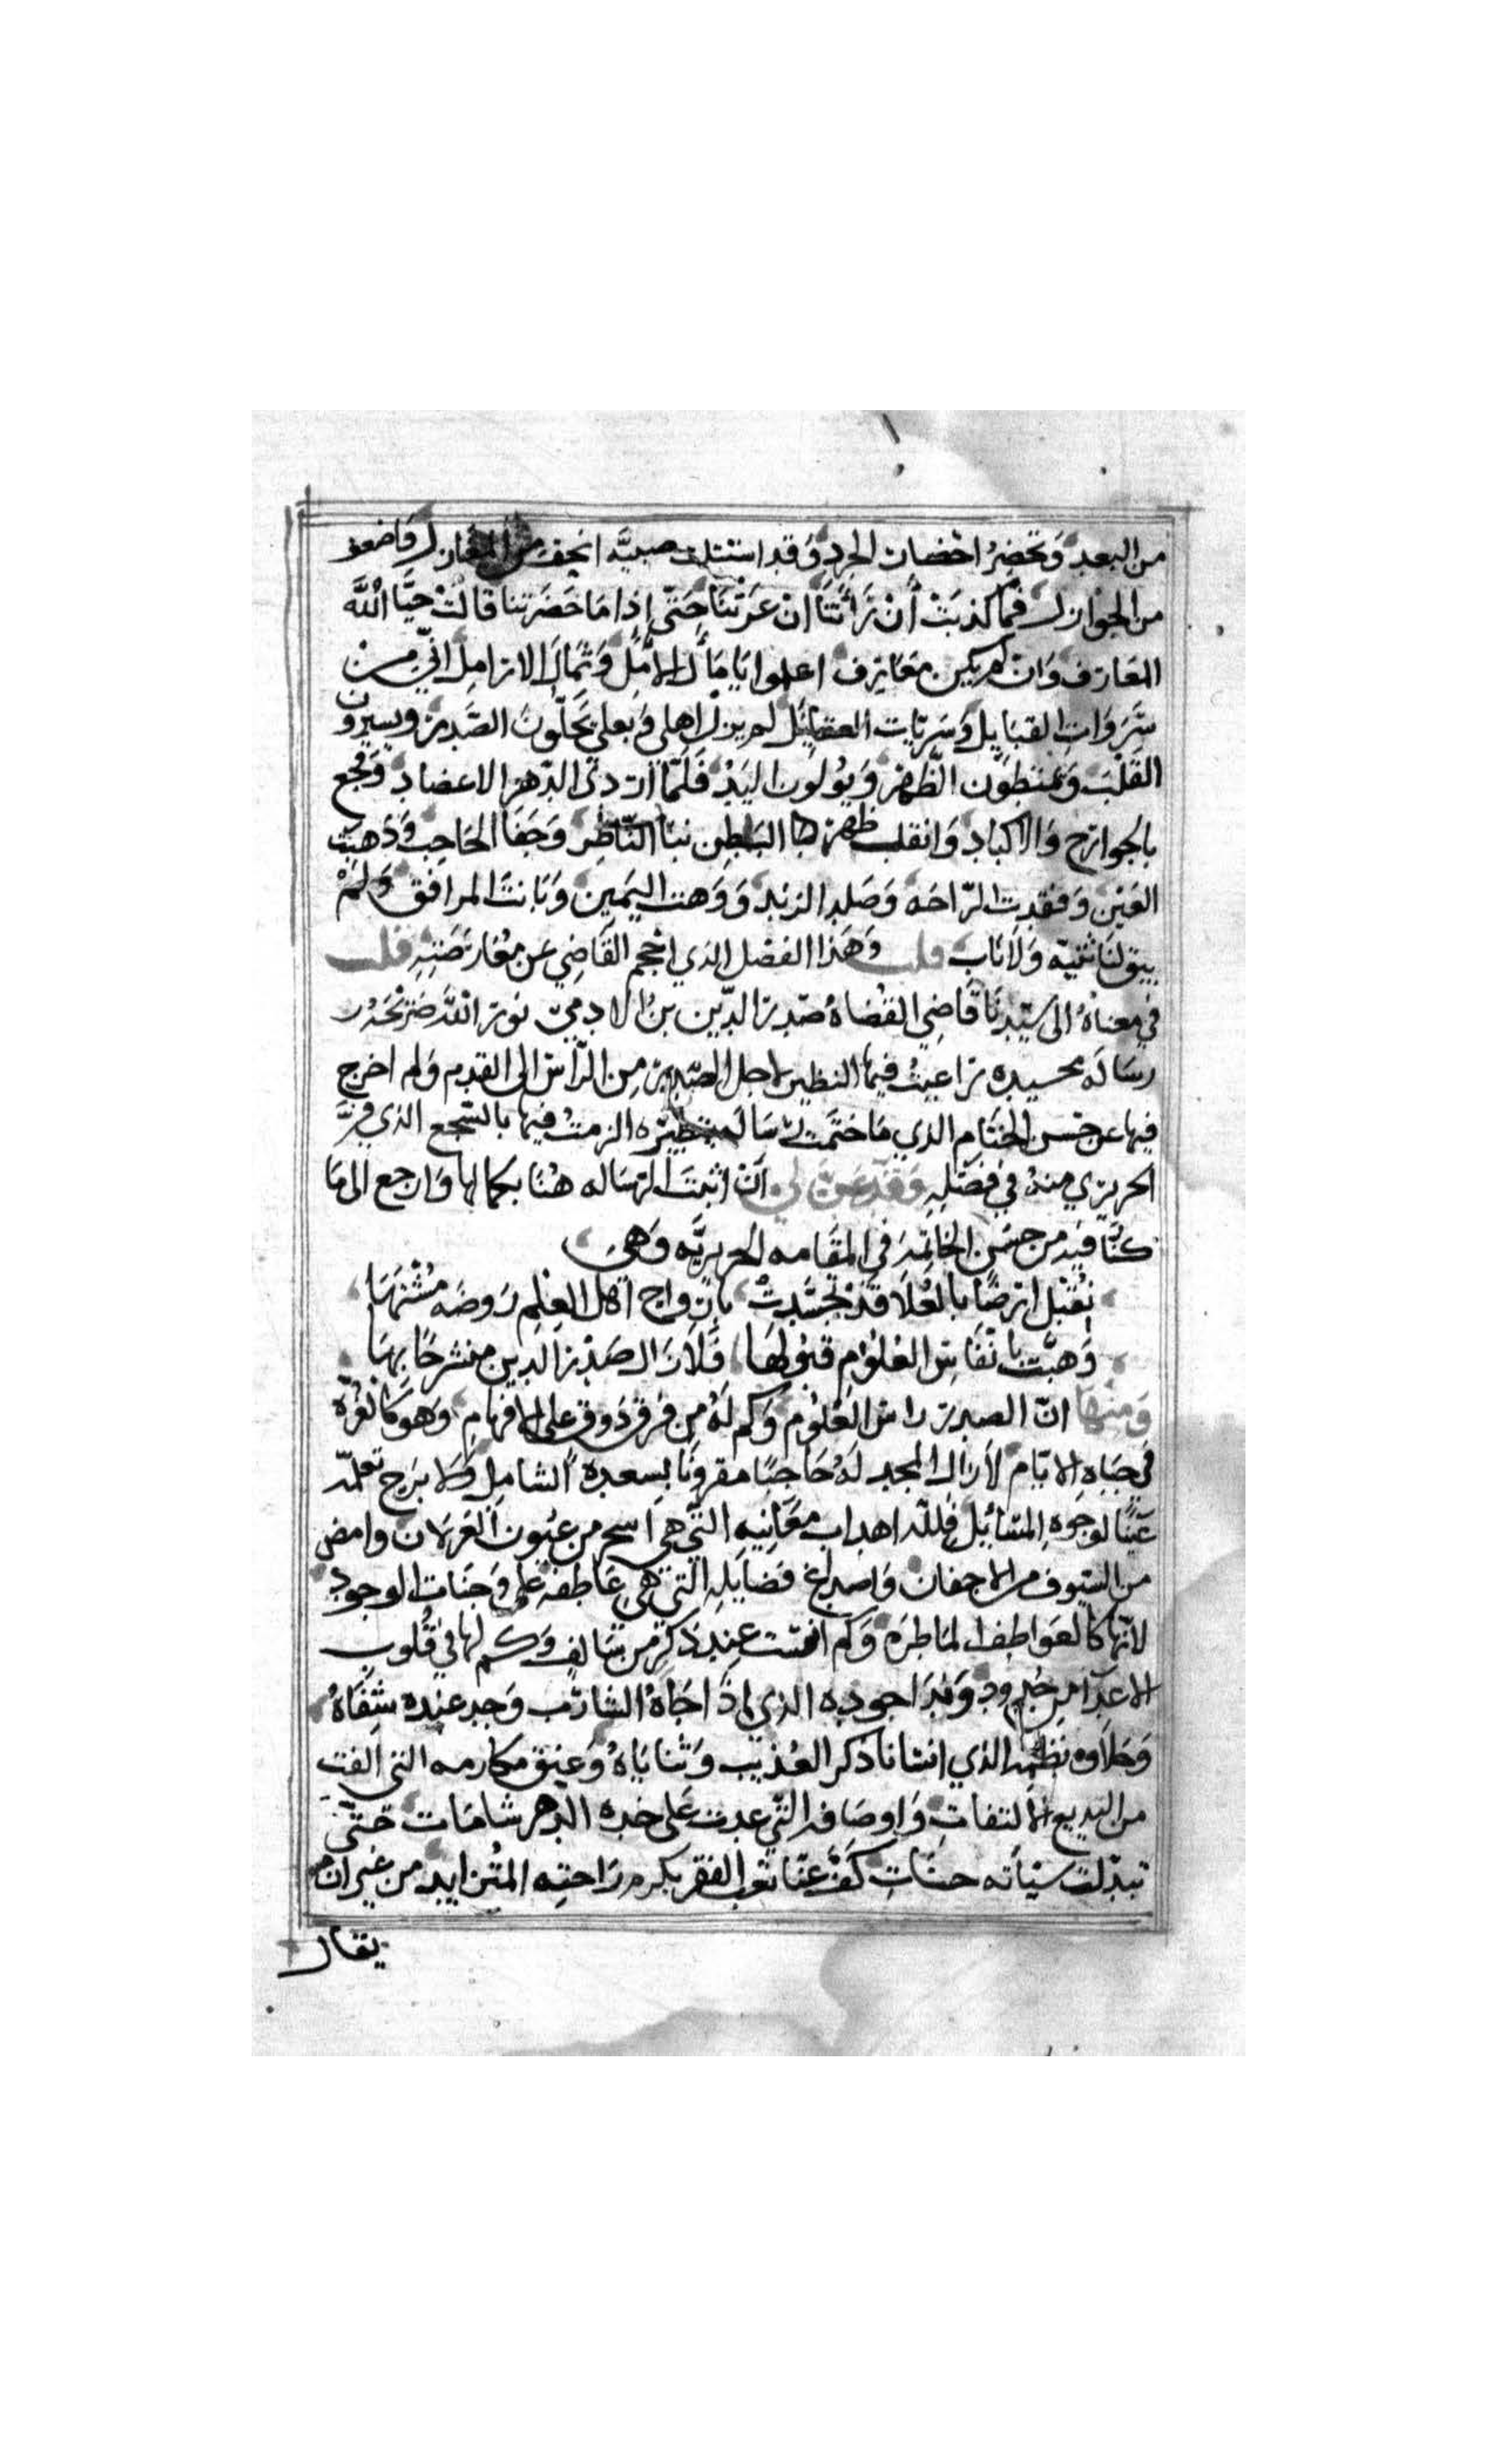 من البعد وتحضر احضار الجرد وقد استتلت صبيه انحف من المغازل واضعف
من الجوازل فما كذبت أن رأتنا ان عرتنا حتى إذا ما حضرتنا قالت حيّا الله
المعارف وان لم يكن معارف اعلموا يا مأل الأمل وثمال الارامل اني من
سروات القبايل وسريات العقايل لم يزل اهلي وبعلي يحلّون الصدر ويسيرون
القلب ويمتطون الظهر ويولون اليد فلمّا اردى الدهر الاعضاد وفجع
بالجوارح والاكباد وانقلب ظهرها لبطن نبا الناظر وجفا الحاجب وذهبت
العين وفقدت الراحه وصلد الزند ووهت اليمين وبانت المرافق ولم
يبق لنا ثنيه ولا ناب قلت وهذا الفصل الذي احجم القاضي عن معارضته قلت
في معناه الى سيدنا قاضي القضاه صدر الدين بن الادمي نور الله ضريحه
رساله بحسيده راعيت فيها النظير لاجل الصدر من الراس الى القدم ولم اخرج
فيها عن حسن الختام الذي ما ختمت رسالة بنظيره الزمت فيها بالسجع الذي فرّ
الحريري منه في فصله وقد عنّ لي أن اثبت الرساله هنا بكمالها وارجع الى ما
كنّا فيه من حسن الخاتمه في المقامه الحريريّه وهي
نقبل ارضا بالعلا قد تجسّدت بارواح اهل العلم روضه مشتهاها
وهبّت بانفاس العلوم قبولها فلا زال صدر الدين منشرحا بها
ومنها انّ الصدر راس العلوم وكم له من فرق ذوق على الافهام وهو كالغرّه
في جباه الايام لا زال المجد له حاجبا مقرونا بسعده الشامل ولا برح تعلمه
عينا لوجوه المسائل فلله اهداب معانيه التي هي اسحر من عيون الغزلان وامضى
من السيوف من الاجفان واصداغ فضايله التي هي عاطفه على وجنات الوجود
لانها كالعواطف الماطره وكم انست عند ذكر من سالف وكم لها في قلوب
الاعدا من خدود وندا جوده الذي إذا جاه الشارب وجد عنده شفاه
وحلاوه نظمه الذي انسانا ذكر العذيب وثناياه وعنق مكارمه التي الفت
من البديع الالتفات واوصافه التي عدت على خده الدهر شامات حتى
تبدّلت سيأته حسنات كفّ عنّا تعب الفقر بكرم راحته المتزايد من غير ان
يقال